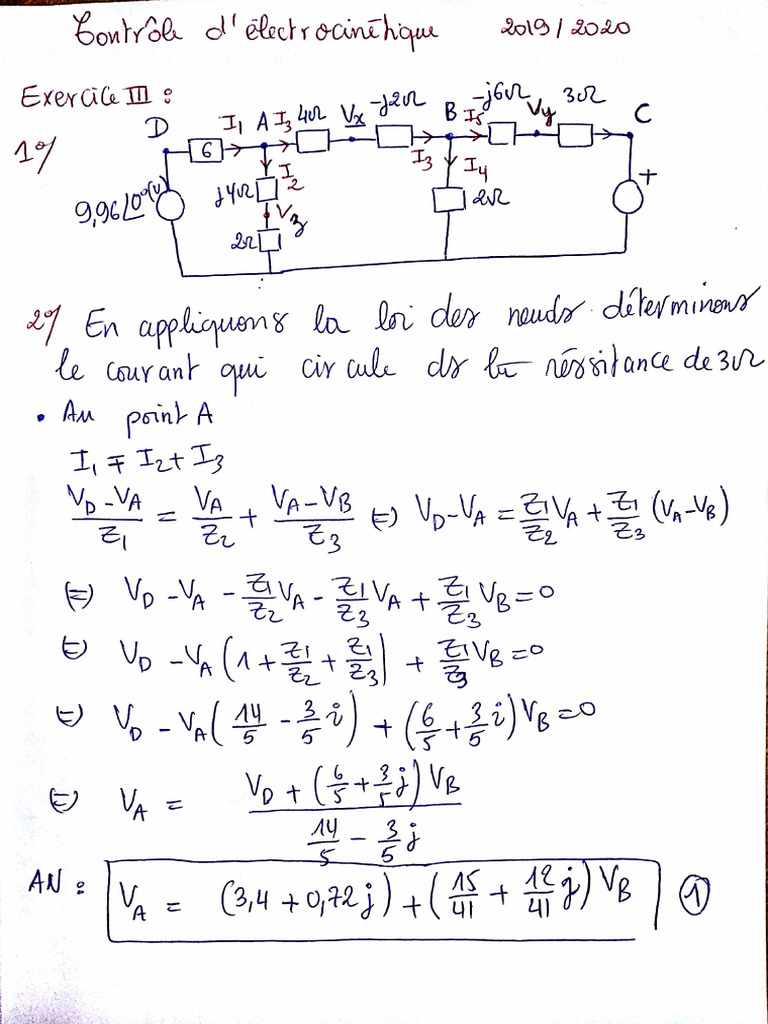 Contrôle d'électrocinétique 2019/2020
Exercice III :
1°/
D 6 I₁ A I₃ 4Ω Vx -j2Ω B I₅ -j6Ω Vy 3Ω C
I₂ I₃ I₄
9,96∠0°(V) j4Ω V₃ 2Ω 2Ω +
2°/ En appliquons la loi des neuds déterminons
le courant qui circule ds la réssitance de 3Ω
• Au point A
I₁ = I₂ + I₃
(V_D - V_A)/Z₁ = V_A/Z₂ + (V_A - V_B)/Z₃ (=) V_D - V_A = Z₁/Z₂ V_A + Z₁/Z₃ (V_A - V_B)
(=) V_D - V_A - Z₁/Z₂ V_A - Z₁/Z₃ V_A + Z₁/Z₃ V_B = 0
(=) V_D - V_A (1 + Z₁/Z₂ + Z₁/Z₃) + Z₁/Z₃ V_B = 0
(=) V_D - V_A (14/5 - 3/5 i) + (6/5 + 3/5 i) V_B = 0
(=) V_A = (V_D + (6/5 + 3/5 j) V_B)/(14/5 - 3/5 j)
AN : V_A = (3,4 + 0,72j) + (15/41 + 12/41 j) V_B ①